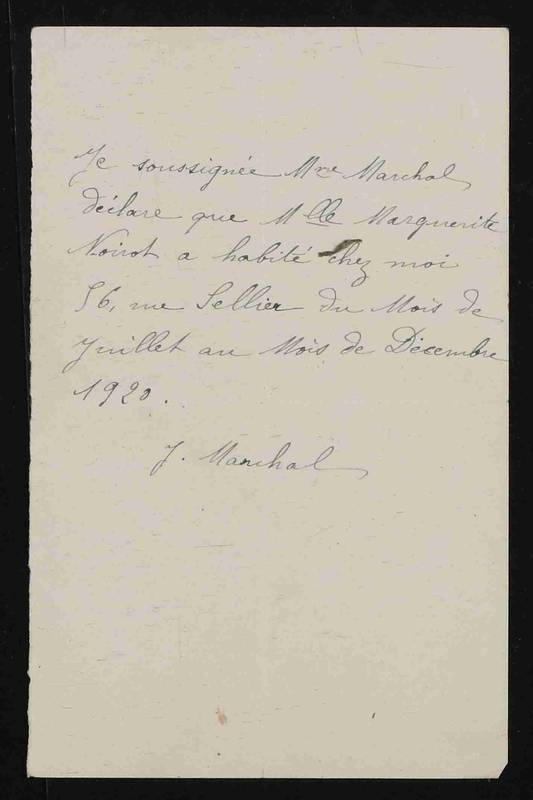 Je soussignée Mme Marchal
déclare que Mlle Marguerite
Noirot a habité chez moi
56, rue Sellier du Mois de
Juillet au Mois de Décembre
1920.
J. Marchal